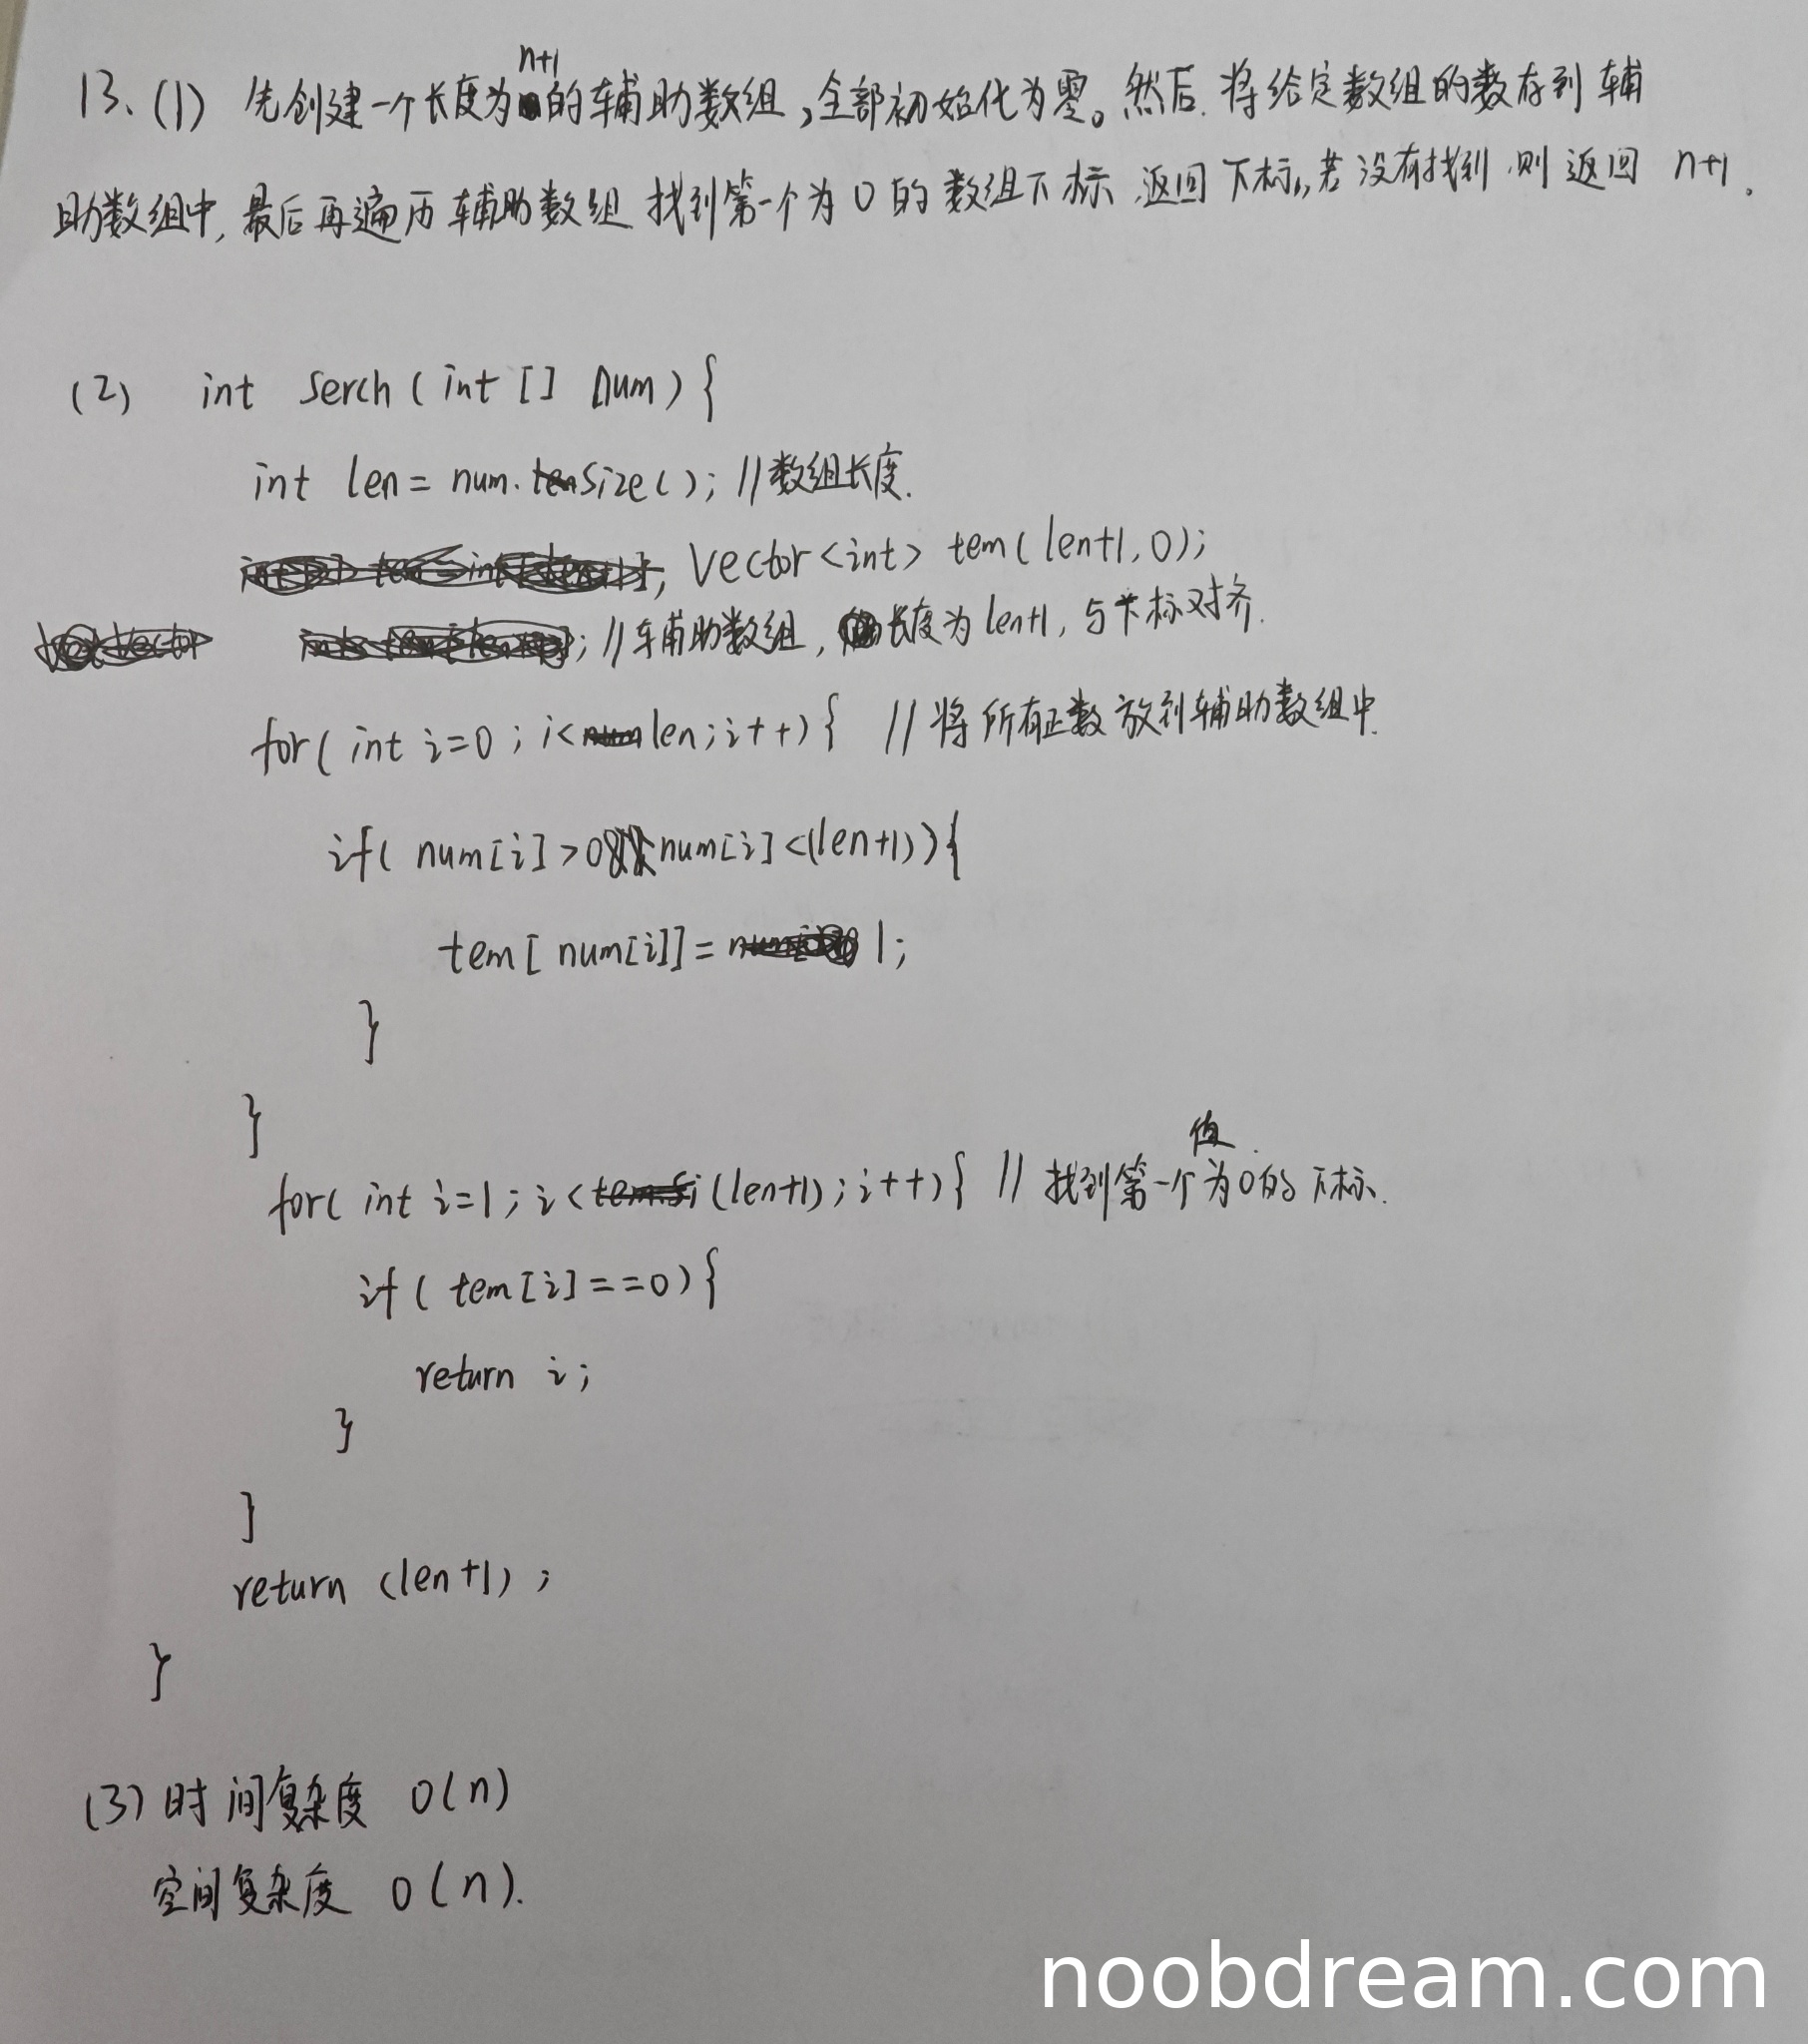 13. (1) 先创建一个长度为n+1的辅助数组,全部初始化为零。然后.将给定数组的数存到辅
助数组中,最后再遍历辅助数组找到第一个为0的数组下标,返回下标,若没有找到,则返回 n+1.
(2) int Serch(int [] num){
int len = num.size(); //数组长度.
Vector<int> tem(len+1,0);
//辅助数组,长度为len+1,与下标对齐.
for( int i=0; i<len; i++){ //将所有正数放到辅助数组中.
if( num[i]>0&&num[i]<(len+1)){
tem[ num[i]]= 1;
}
}
for( int i=1; i<(len+1); i++){ // 找到第一个值为0的下标.
if( tem[i]==0){
return i;
}
}
return (len+1);
}
(3) 时间复杂度 O(n)
空间复杂度 O(n).
noobdream.com